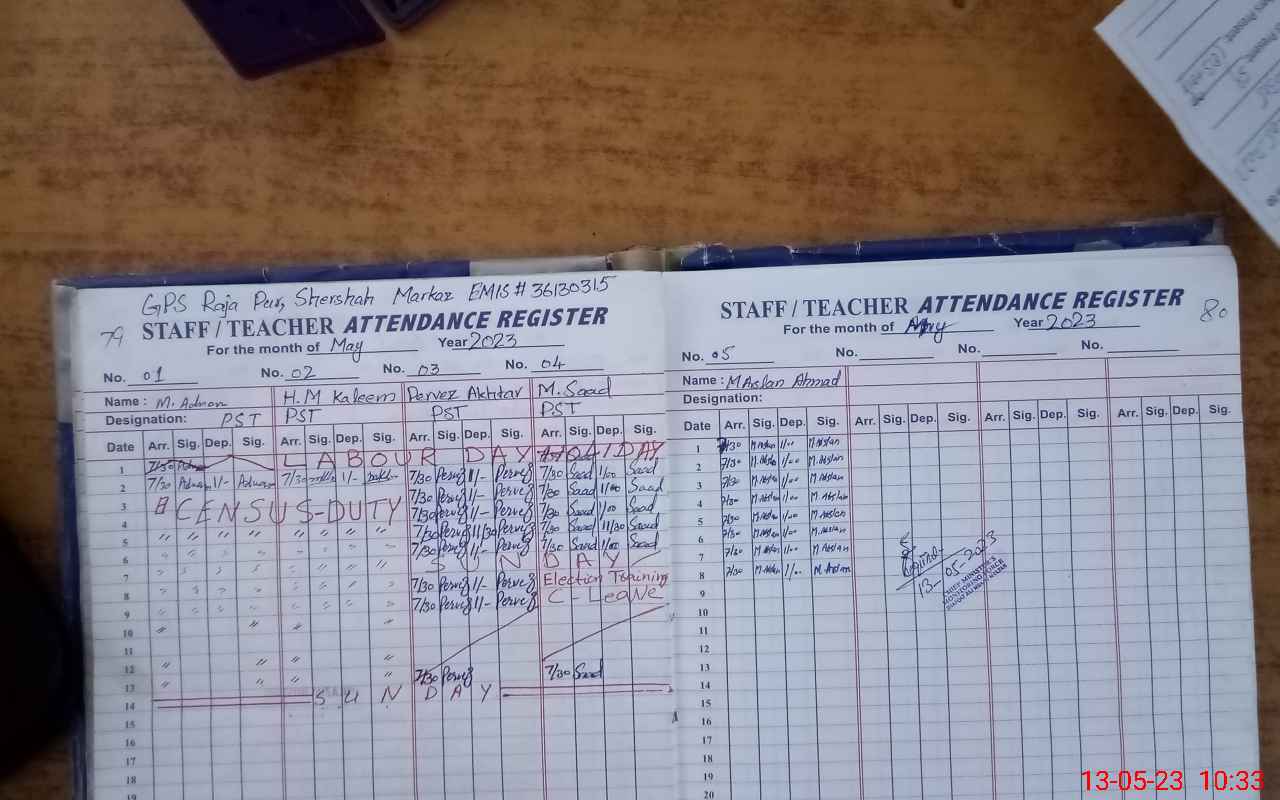 GPS Raja Pur, Shershah Markaz EMIS # 36130315
79 STAFF / TEACHER ATTENDANCE REGISTER
For the month of May Year 2023
No. 01 No. 02 No. 03 No. 04
Name : M. Adnan H.M Kaleem Pervez Akhtar M. Saad
Designation: PST PST PST PST
Date Arr. Sig. Dep. Sig. Arr. Sig. Dep. Sig. Arr. Sig. Dep. Sig. Arr. Sig. Dep. Sig.
1 LABOUR DAY HOLIDAY
2 7/30 Adnan 1/- Adnan 7/30 1/- 7/30 Pervez 1/- Pervez 7/30 Saad 1/00 Saad
3 CENSUS-DUTY 7/30 Pervez 1/- Pervez 7/30 Saad 1/00 Saad
4 " " " " " " " " 7/30 Pervez 1/- Pervez 7/30 Saad 1/00 Saad
5 " " " " " " " " 7/30 Pervez 11/30 Pervez 7/30 Saad 11/30 Saad
6 " " " " " " " " 7/30 Pervez 1/- Pervez 7/30 Saad 1/00 Saad
7 " " " " " " " " SUNDAY
8 " " " " " " " " 7/30 Pervez 1/- Pervez Election Training
9 " " " " " " " " 7/30 Pervez 1/- Pervez C-Leave
10 " " " "
11
12 " " " "
13 " " " " 7/30 Pervez 7/30 Saad
14 SUNDAY
15
16
17
18
19
STAFF / TEACHER ATTENDANCE REGISTER 80
For the month of May Year 2023
No. 05 No. No. No.
Name : M Arslan Ahmad
Designation:
Date Arr. Sig. Dep. Sig. Arr. Sig. Dep. Sig. Arr. Sig. Dep. Sig. Arr. Sig. Dep. Sig.
1 7/30 M. Arslan 1/00 M. Arslan
2 7/30 M. Arslan 1/00 M. Arslan
3 7/30 M. Arslan 1/00 M. Arslan
4 7/30 M. Arslan 1/00 M. Arslan
5 7/30 M. Arslan 1/00 M. Arslan
6 7/30 M. Arslan 1/00 M. Arslan
7 7/30 M. Arslan 1/00 M. Arslan
8 7/30 M. Arslan 1/00 M. Arslan
9
10
11
12
13
14
15
16
17
18
19
20
13-05-2023
CHIEF MINISTER'S
MONITORING FORCE
13-05-23 10:33